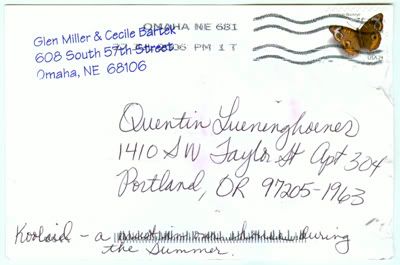 OMAHA NE 681
Glen Miller & Cecile Bartek
608 South 57th Street
06 PM 1 T
Omaha, NE 68106
USA
Quentin Lueninghoener
1410 SW Taylor St Apt 304
Portland, OR 97205-1963
Koolaid - a during
the Summer.